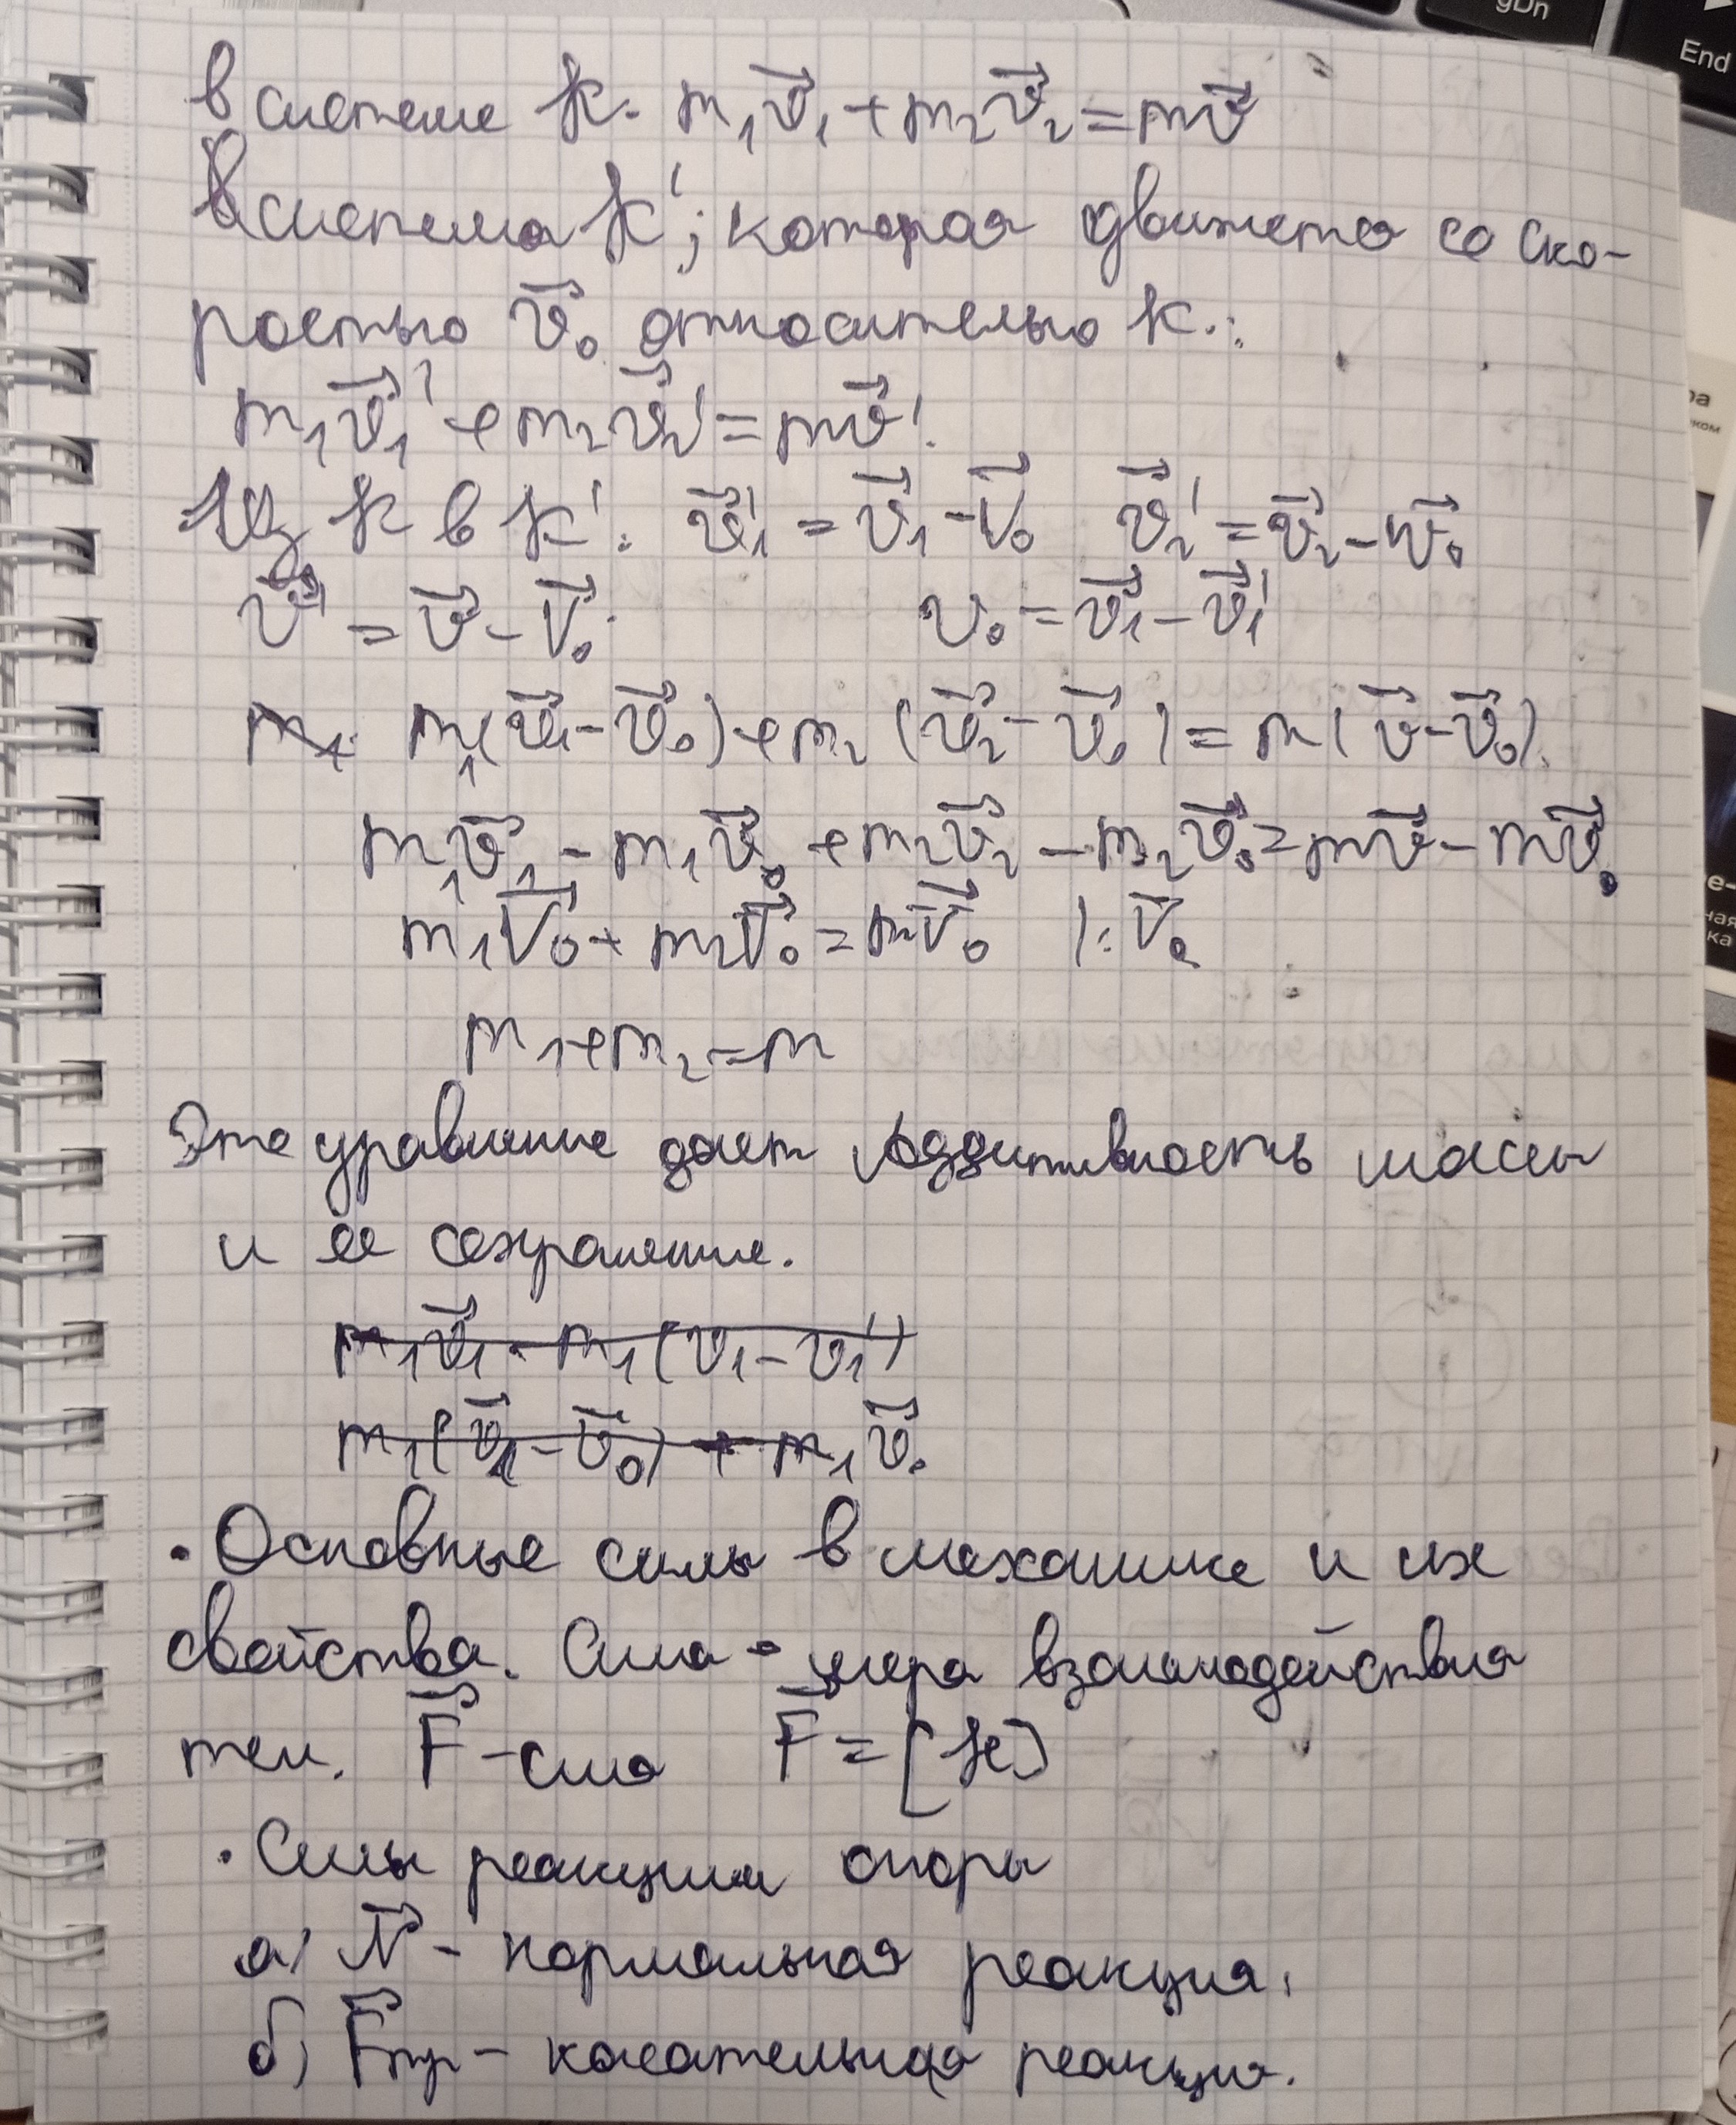 gDn
End
В системе K. m₁v⃗₁ + m₂v⃗₂ = mv⃗
В система K'; которая движется со ско-
ростью v⃗₀ относительно K.:
m₁v⃗₁' + m₂v⃗₂' = mv⃗'.
Из K в K': v⃗₁' = v⃗₁ - v⃗₀ v⃗₂' = v⃗₂ - v⃗₀
v⃗' = v⃗ - v⃗₀. v₀ = v⃗₁ - v⃗₁'
m₁(v⃗₁ - v⃗₀) + m₂(v⃗₂ - v⃗₀) = m(v⃗ - v⃗₀).
m₁v⃗₁ - m₁v⃗₀ + m₂v⃗₂ - m₂v⃗₀ = mv⃗ - mv⃗₀
m₁v⃗₀ + m₂v⃗₀ = mv⃗₀ |: v⃗₀
m₁ + m₂ = m
Это уравнение дает аддитивность массы
и ее сохранение.
m₁v⃗₁ - m₁(v₁ - v₁')
m₁(v⃗₁ - v⃗₀) + m₁v⃗₀
· Основные силы в механике и их
свойства. Сила - мера взаимодействия
тел. F⃗ - сила F⃗ = [H]
· Силы реакции опоры
а) N⃗ - нормальная реакция.
б) F⃗тр - касательная реакция.